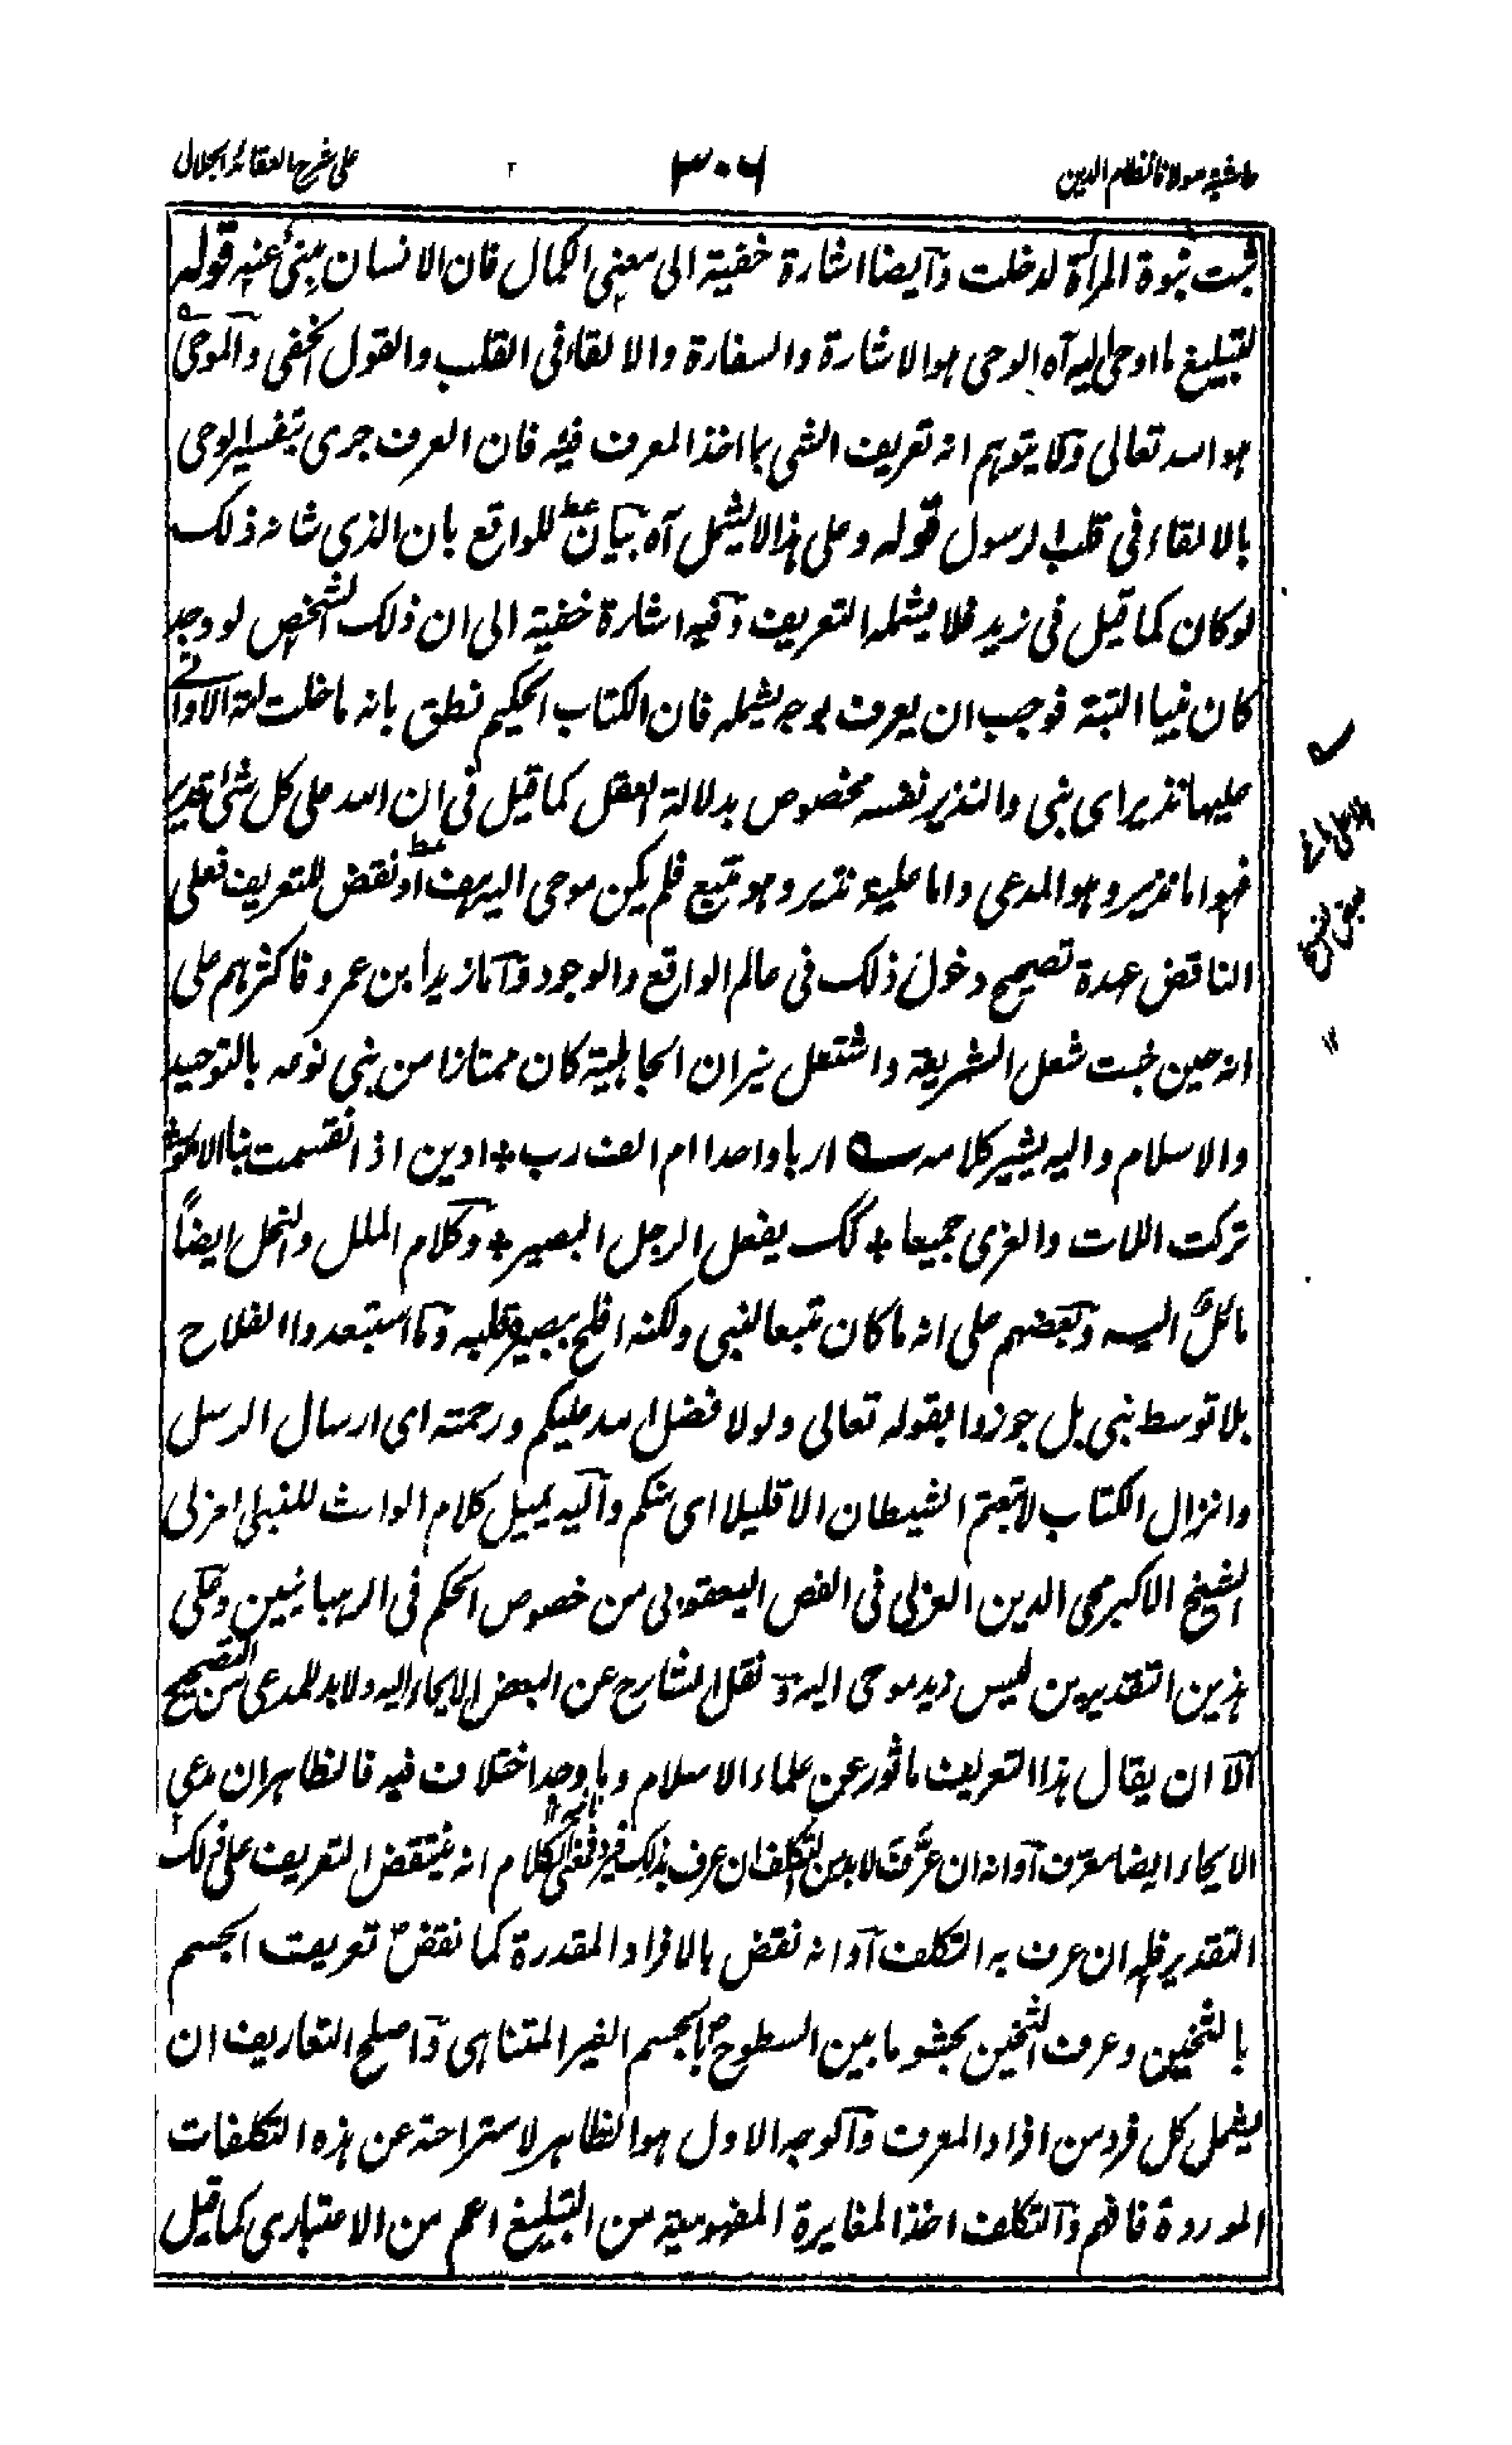 حاشیہ مولانا نظام الدین
٣٠٦
علی شرح العقائد الجلالی
ثبت نبوة المرأة لدخلت وايضا اشارة خفية الى معنى الكمال فان الانسان مبنئ عنه قوله
لتبليغ ما اوحى اليه آه الوحى هو الاشارة والسفارة والالقاء فى القلب والقول الخفى والموحى
هو الله تعالى ولا يتوهم انه تعريف الشى بما اخذ المعرف فيه فان العرف جرى بتفسير الوحى
بالالقاء فى قلب الرسول قوله وعلى هذا لا يشمل آه بيان للواقع بان الذى شانه ذلك
لو كان كما قيل فى زيد فلا يشمله التعريف وفيه اشارة خفية الى ان ذلك الشخص لو وجد
كان نبيا البتة فوجب ان يعرف بوجه يشمله فان الكتاب الحكيم نطق بانه ما خلت
عليها نذير اى نبى والنذير نفسه مخصوص بدلالة العقل كما قيل فى ان الله على كل شئ قدير
فهو اما نذير وهو المدعى واما عليه نذير وهو متبع فلم يكن موحى اليه او نقض للتعريف فعلى
الناقض عهدة تصحيح دخول ذلك فى عالم الواقع والوجود واما زيد ابن عمرو فاكثرهم على
انه حين خبت شعل الشريعة واشتعل نيران الجاهلية كان ممتازا من بنى نوعه بالتوحيد
والاسلام واليه يشير كلامه اربا واحدا ام الف رب * ادين اذا انقسمت بنا الامور
تركت اللات والعزى جميعا * كك يفعل الرجل البصير * وكلام الملل والنحل ايضاً
مائلٌ اليه وبعضهم على انه ما كان متبعا لنبى ولكنه افلح ببصيرة قلبه وما استبعدوا الفلاح
بلا توسط نبى بل جوزوا بقوله تعالى ولولا فضل الله عليكم ورحمته اى ارسال الرسل
وانزال الكتاب لاتبعتم الشيطان الا قليلا اى منكم واليه يميل كلام الوارث للنبى
الشيخ الاكبر محى الدين العربى فى الفص اليعقوبى من فصوص الحكم فى الرهبانيين وعلى
هذين التقديرين ليس زيد موحى اليه ونقل الشارح عن البعض الايحاء اليه ولا بد للمدعى من التصحيح
الا ان يقال هذا التعريف ماثور عن علماء الاسلام وما وجد اختلاف فيه فالظاهر ان مدعى
الايحاء ايضا معرف او انه ان عَرَّفَ لا بد من التكلف ان عرف بذلك الكلام انه ينتقض التعريف على ذلك
التقدير ان عرف به التكلف او انه نقض بالافراد المقدرة كما نقض تعريف الجسم
بالثخين وعرف الثخين بحشو ما بين السطوح بالجسم الغير المتناهى واصلح التعاريف ان
يشمل كل فرد من افراد المعرف والوجه الاول هو الظاهر لاستراحة عن هذه التكلفات
الموردة فافهم والتكلف اخذ المغايرة المفهومية من التبليغ اعم من الاعتبارى كما قيل